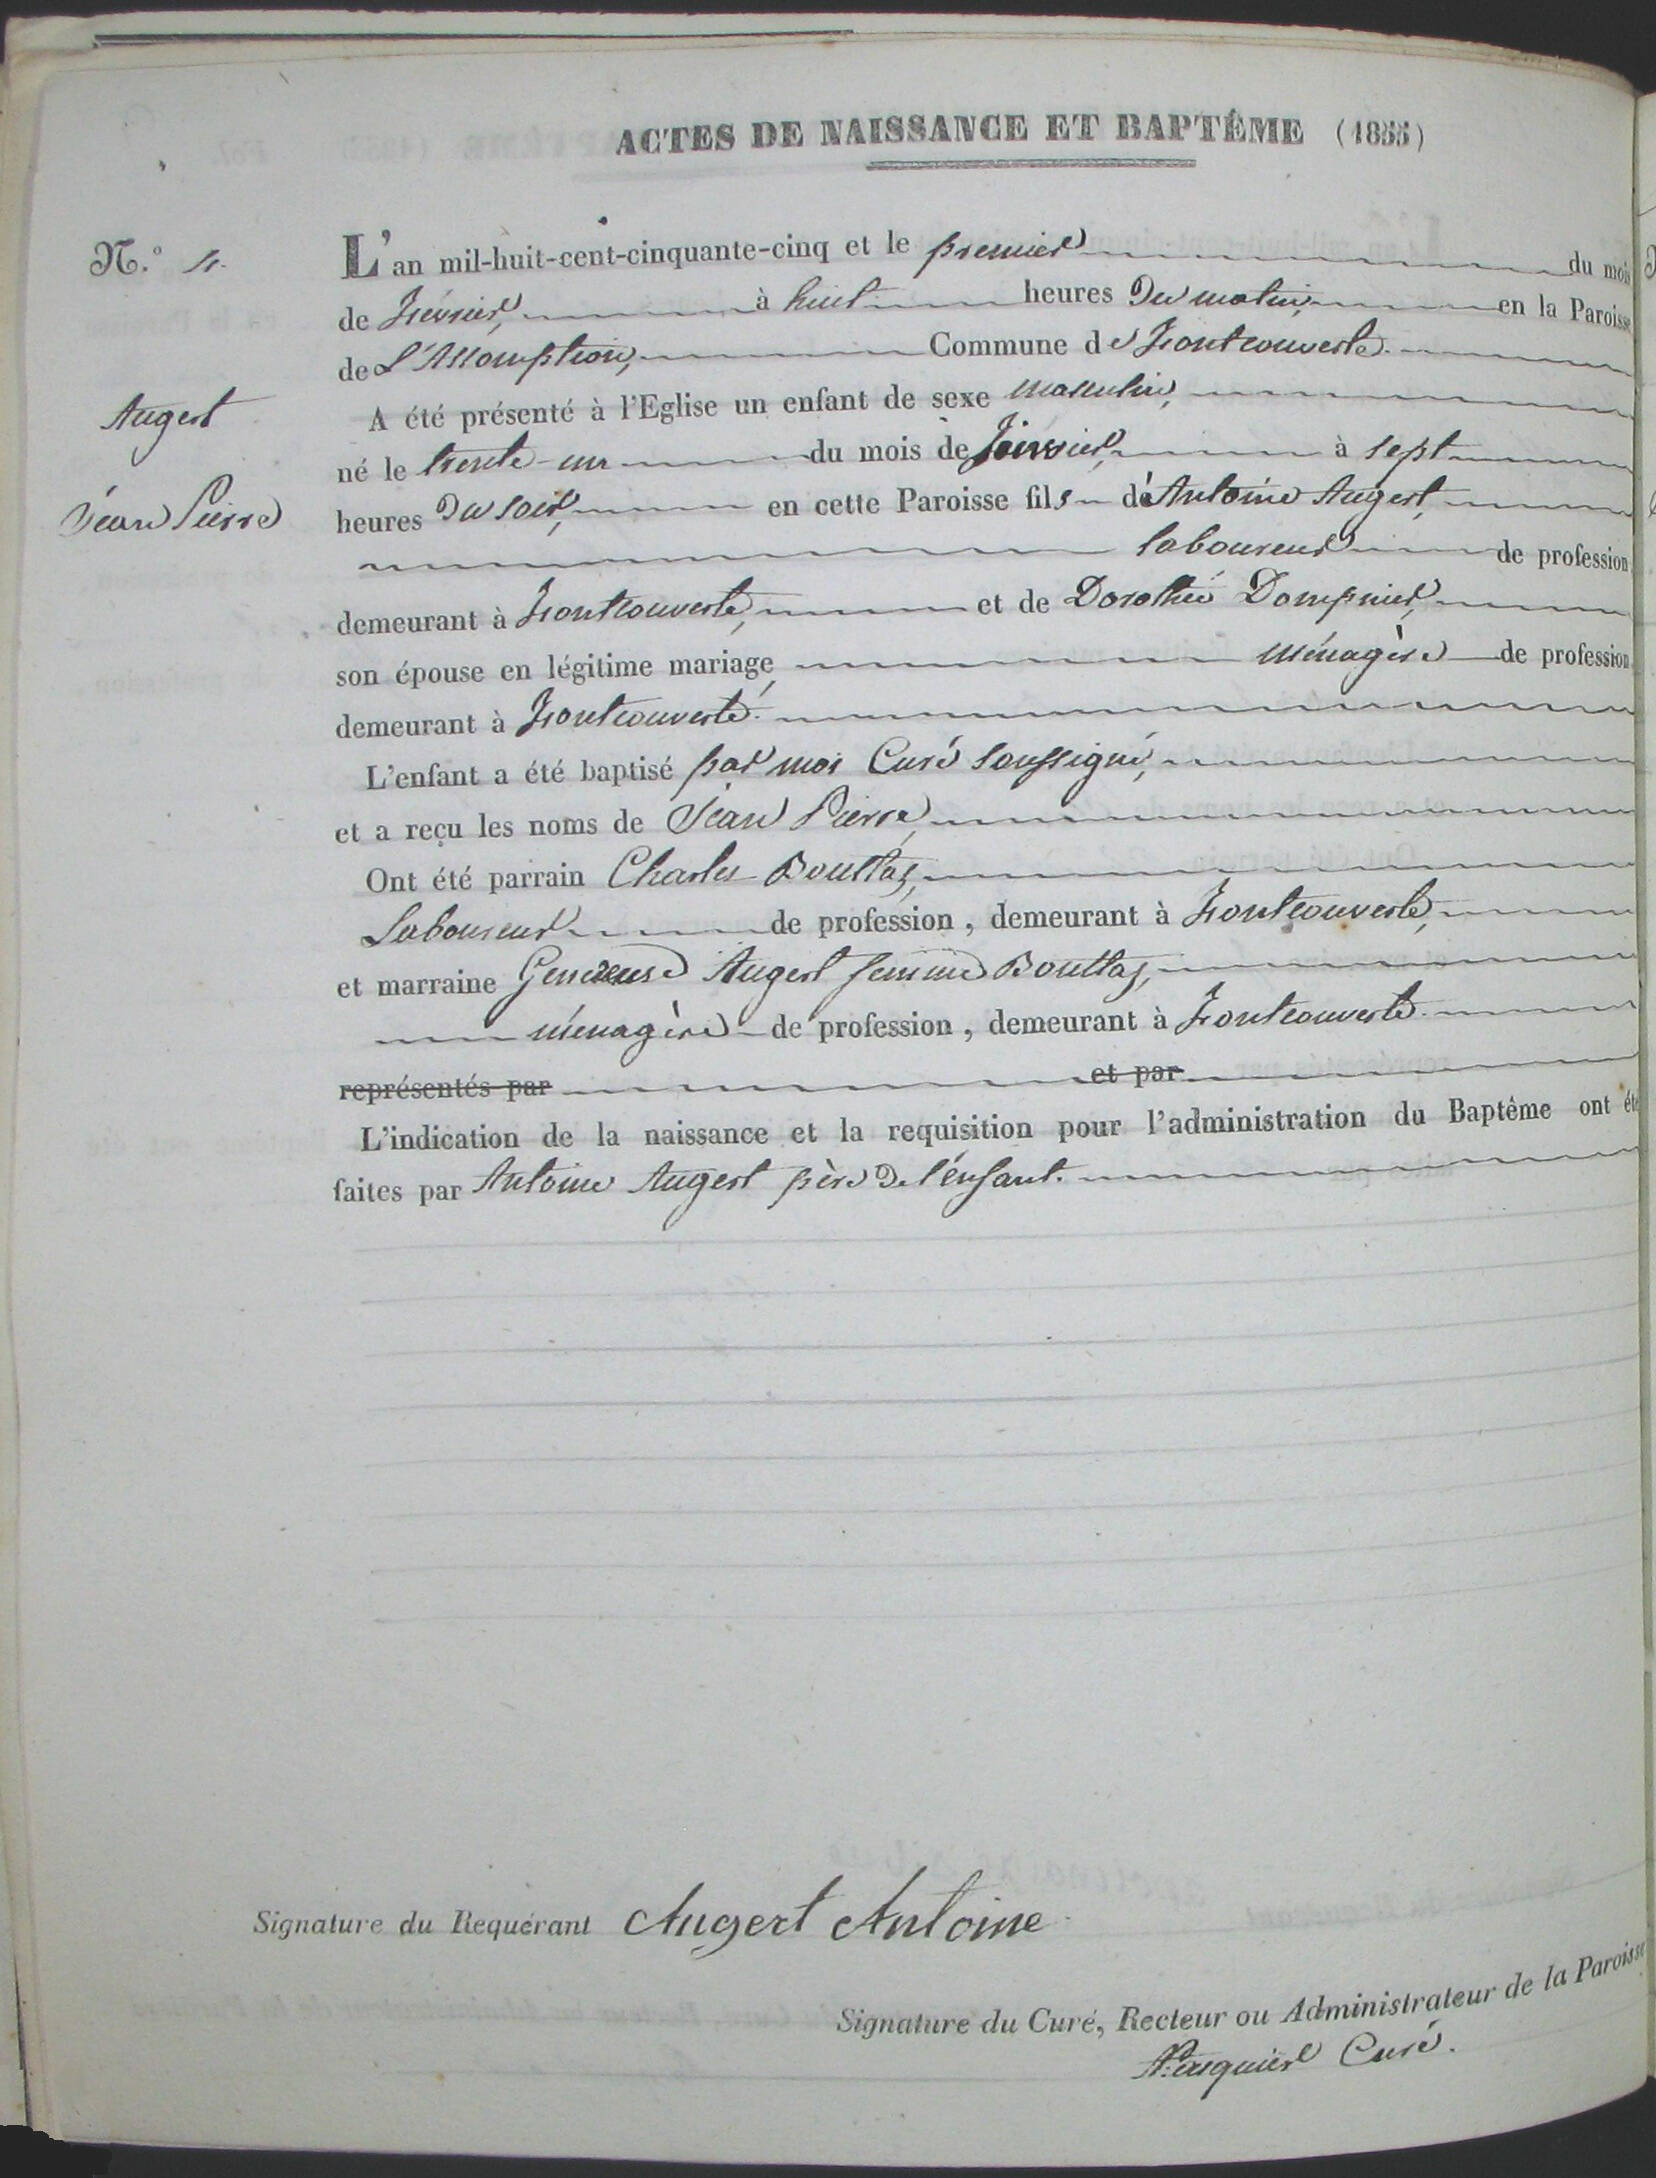 ACTES DE NAISSANCE ET BAPTÊME (1855)
N.° 4.
L'an mil-huit-cent-cinquante-cinq et le premier du mois
de Février, à huit heures du matin, en la Paroisse
de L'Assomption, Commune de Fontcouverte.
Augert
A été présenté à l'Eglise un enfant de sexe masculin,
né le trente-un du mois de Janvier, à sept
Jean Pierre
heures du soir, en cette Paroisse fils d'Antoine Augert,
laboureur de profession
demeurant à Fontcouverte, et de Dorothée Dompnier,
son épouse en légitime mariage, ménagère de profession
demeurant à Fontcouverte.
L'enfant a été baptisé par moi Curé soussigné,
et a reçu les noms de Jean Pierre,
Ont été parrain Charles Bouttaz,
Laboureur de profession, demeurant à Fontcouverte,
et marraine Généreuse Augert femme Bouttaz,
ménagère de profession, demeurant à Fontcouverte.
représentés par et par
L'indication de la naissance et la requisition pour l'administration du Baptême ont été
faites par Antoine Augert père de l'enfant.
Signature du Requérant Augert Antoine
Signature du Curé, Recteur ou Administrateur de la Paroisse
Curé.